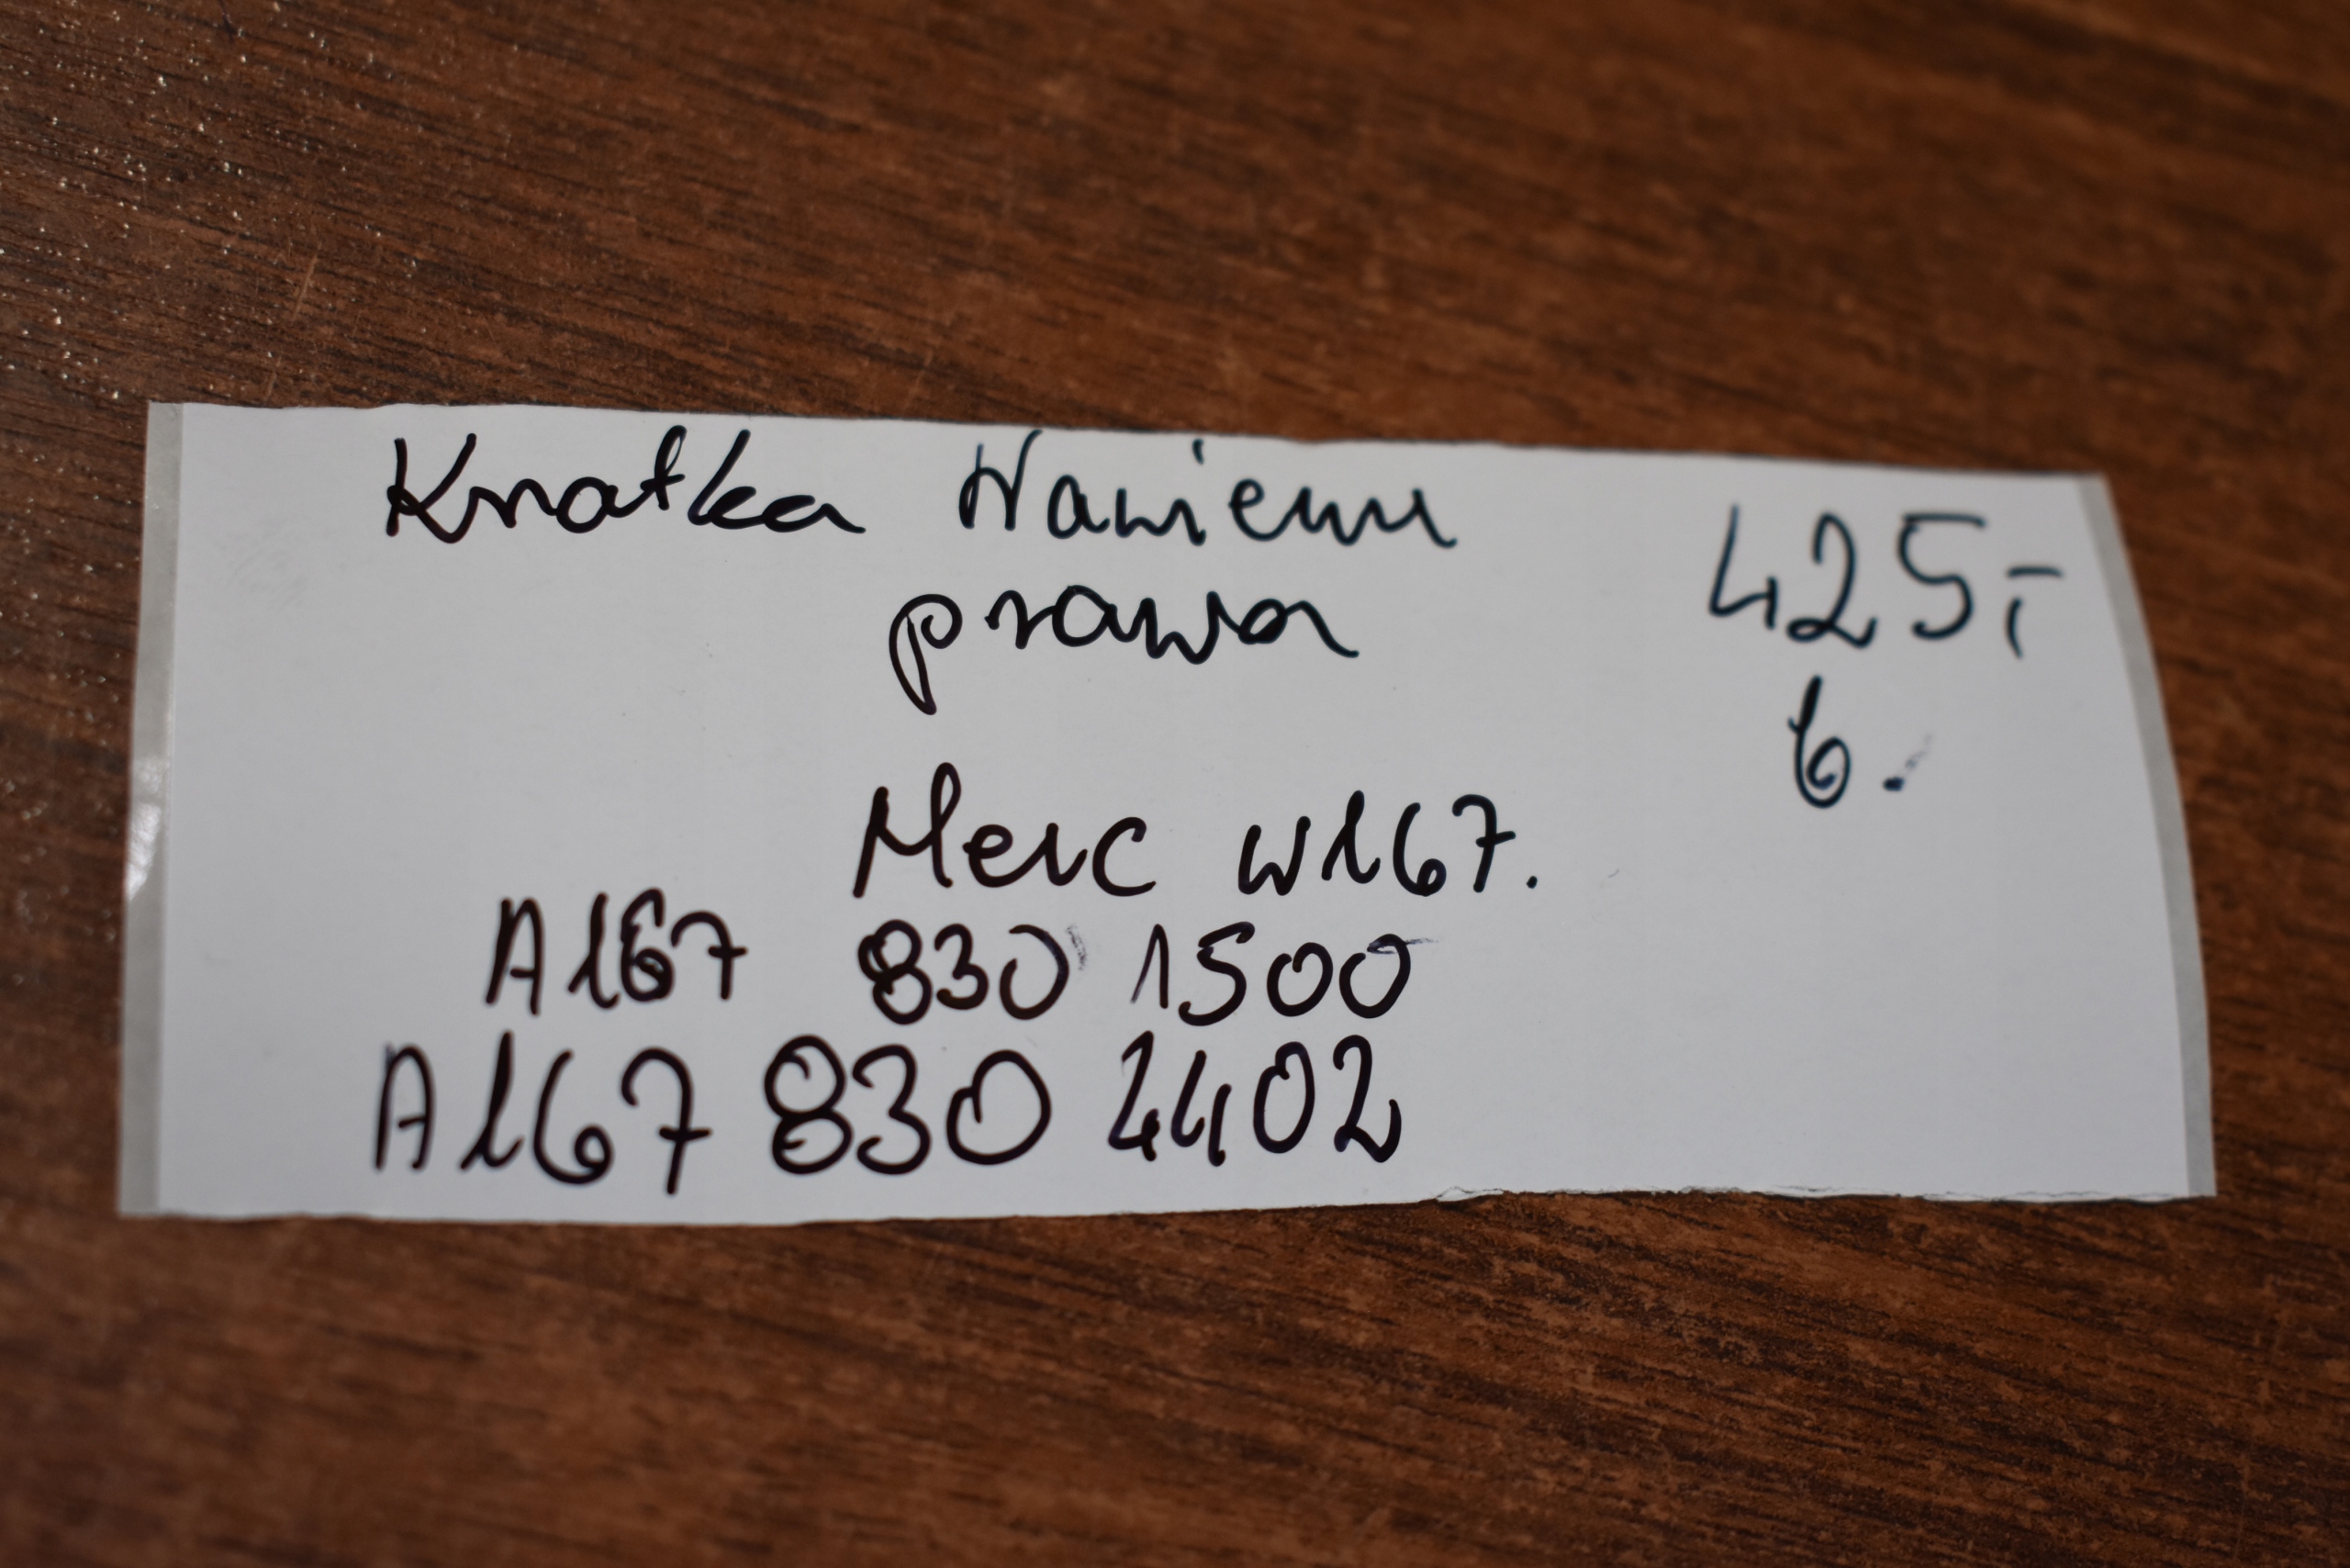 Kratka Nawiewu
prawa
425,-
6.
Merc W167.
A167 830 1500
A167 830 2402